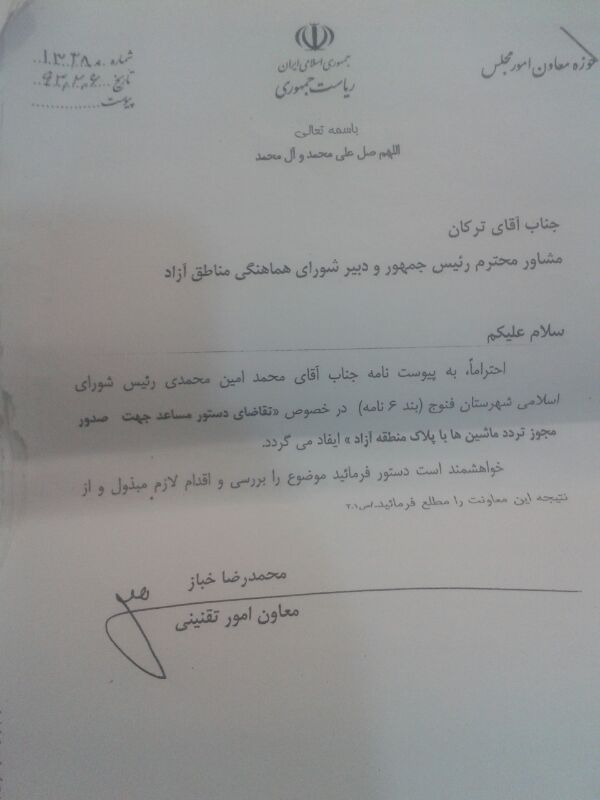 جمهوری اسلامی ایران
ریاست جمهوری
حوزه معاون امور مجلس
شماره ۱۳۳۸۰
تاریخ ۹۳٫۲٫۶
پیوست
باسمه تعالی
اللهم صل علی محمد و آل محمد
جناب آقای ترکان
مشاور محترم رئیس جمهور و دبیر شورای هماهنگی مناطق آزاد
سلام علیکم
احتراماً، به پیوست نامه جناب آقای محمد امین محمدی رئیس شورای
اسلامی شهرستان فنوج (بند ۶ نامه) در خصوص «تقاضای دستور مساعد جهت صدور
مجوز تردد ماشین ها با پلاک منطقه آزاد» ایفاد می گردد.
خواهشمند است دستور فرمائید موضوع را بررسی و اقدام لازم مبذول و از
نتیجه این معاونت را مطلع فرمائید.
محمدرضا خباز
معاون امور تقنینی